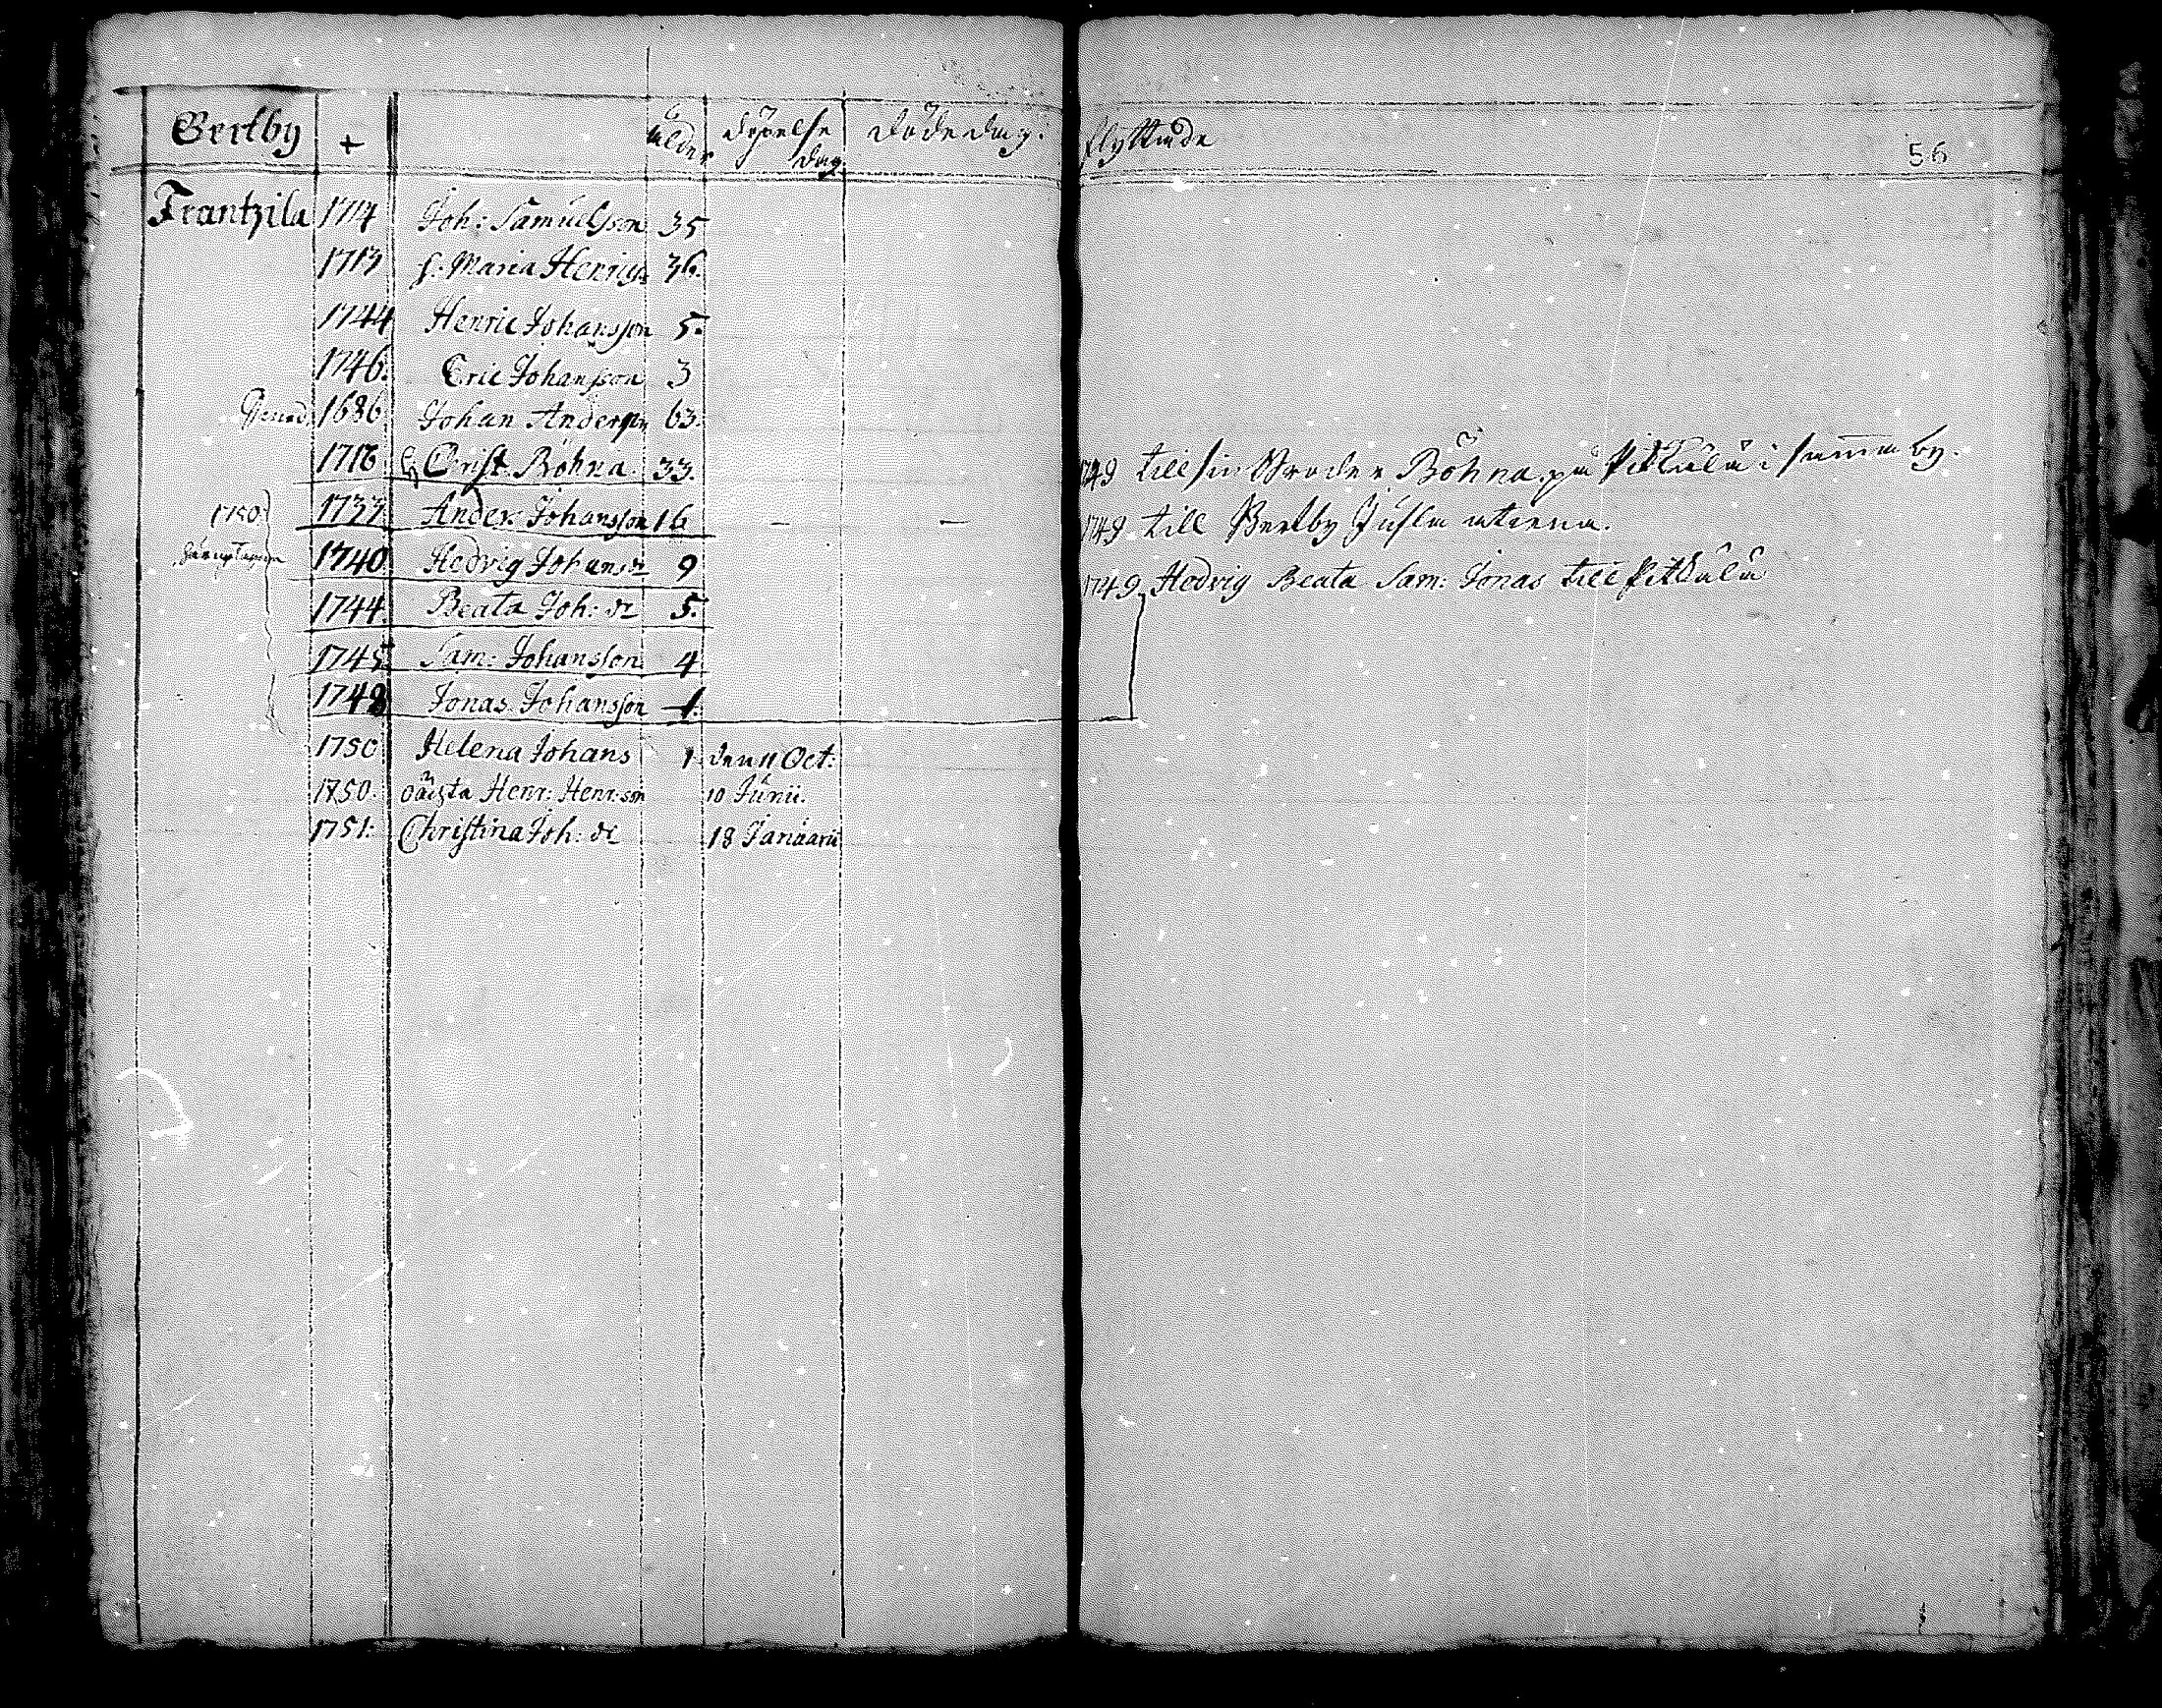 Bertby + ålder döpelse dag. Döde dag. flyttade 56
Frantzila 1714 Joh: Samuelsson 35
1713 h. Maria Henrigs 36.
1744 Henric Johansson 5.
1746. Eric Johansson 3
1686 Johan Anderson 63.
1716 Christ. Böhna. 33. 1749 till sin Broder Böhna på Pitkälä i samma by.
1750 1733 Anders Johansson 16 - - 1749 till Bertby Jusla
1740 Hedvig Johans dr 9 1749 Hedvig Beata Sam: Jonas till Pitkälä
1744 Beata Joh: dr 5.
1745 Sam: Johansson 4
1748 Jonas Johansson 1.
1750 Helena Johans 1 den 11 Oct:
1750. Henr: Henr:son 10 Junii.
1751: Christina Joh: dr 18 Januarii